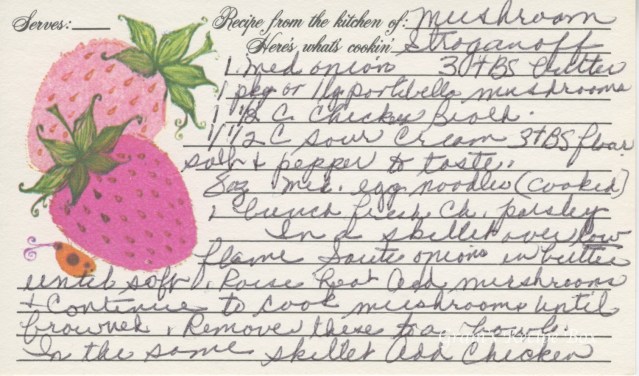 Serves:
Recipe from the kitchen of: Mushroom
Here's what's cookin' Stroganoff
1 med onion 3 tBS butter
1 pkg or 1 lg portibello mushrooms
1 1/2 C. Chicken Broth.
1 1/2 C sour cream 3 tBS flour
salt & pepper to taste.
8oz med. egg noodles (cooked)
1 bunch fresh ch. parsley
In a skillet over low
flame Saute onions in butter
until soft. Raise heat add mushrooms
& continue to cook mushrooms until
browned. Remove these to a bowl.
In the same skillet add Chicken